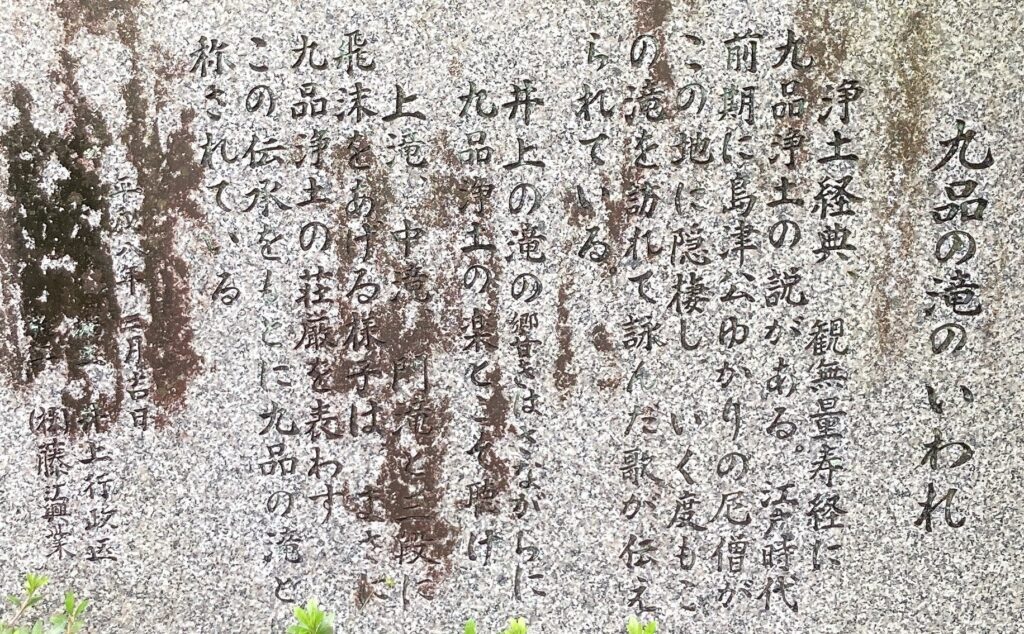 九品の滝のいわれ
浄土経典、観無量寿経に
九品浄土の説がある。江戸時代
前期に島津公ゆかりの尼僧が
この地に隠棲し いく度もこ
の滝を訪れて詠んだ歌が伝え
られている。
井上の滝の響きはさながらに
九品浄土の楽とこそ聴け
上滝、中滝、門滝と三段に
飛沫をあげる様子は まさに
九品浄土の荘厳を表わす
この伝承をもとに九品の滝と
称されている
平成八年三月吉日
井上行政区
㈱藤江興業